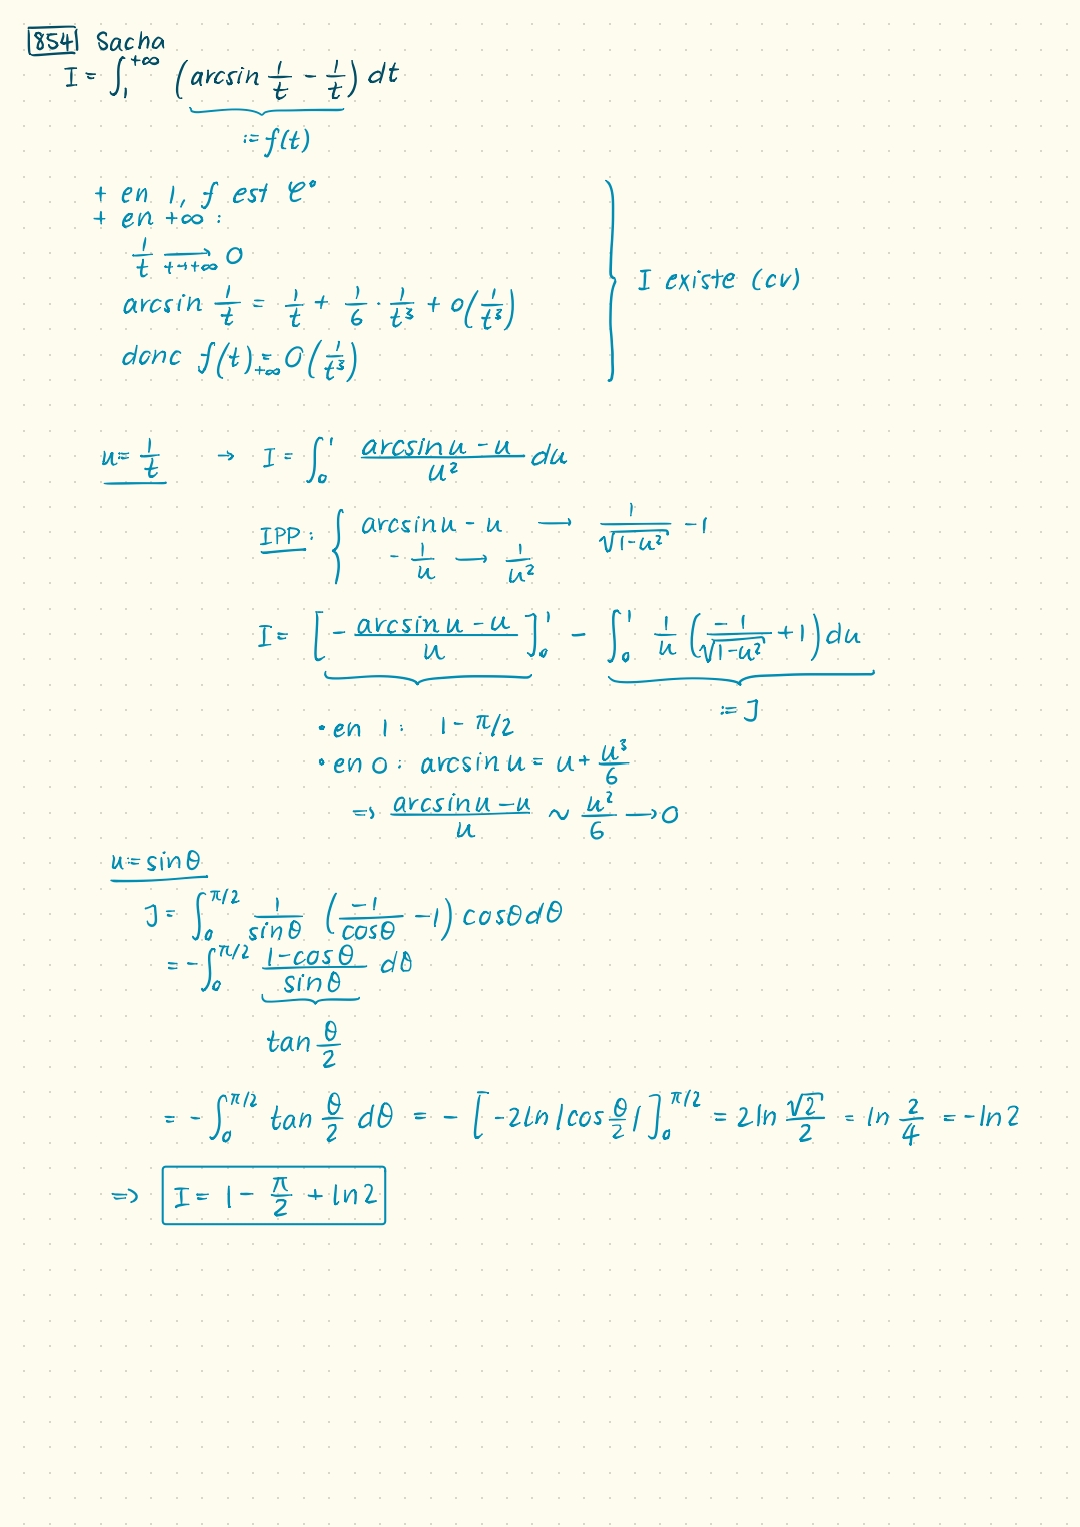 854 Sacha
I = ∫₁^{+∞} (arcsin 1/t − 1/t) dt
:= f(t)
+ en 1, f est 𝒞°
+ en +∞ :
1/t ⟶_{t→+∞} 0
arcsin 1/t = 1/t + 1/6 · 1/t³ + o(1/t³)
donc f(t) =_{+∞} O(1/t³)
I existe (cv)
u = 1/t → I = ∫₀¹ (arcsin u − u)/u² du
IPP : { arcsin u − u ⟶ 1/√(1−u²) − 1
− 1/u ⟶ 1/u²
I = [− (arcsin u − u)/u]₀¹ − ∫₀¹ 1/u (−1/√(1−u²) + 1) du
:= J
• en 1 : 1 − π/2
• en 0 : arcsin u = u + u³/6
=> (arcsin u − u)/u ∼ u²/6 ⟶ 0
u = sin θ
J = ∫₀^{π/2} 1/sin θ (−1/cos θ − 1) cos θ dθ
= − ∫₀^{π/2} (1 − cos θ)/sin θ dθ
tan θ/2
= − ∫₀^{π/2} tan θ/2 dθ = − [−2 ln |cos θ/2|]₀^{π/2} = 2 ln √2/2 = ln 2/4 = − ln 2
=> I = 1 − π/2 + ln 2